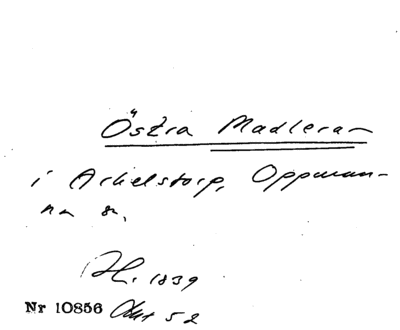 Östra Madleran
i Arkelstorp, Oppman-
na sn.
1839
Nr 10856 Akt 52